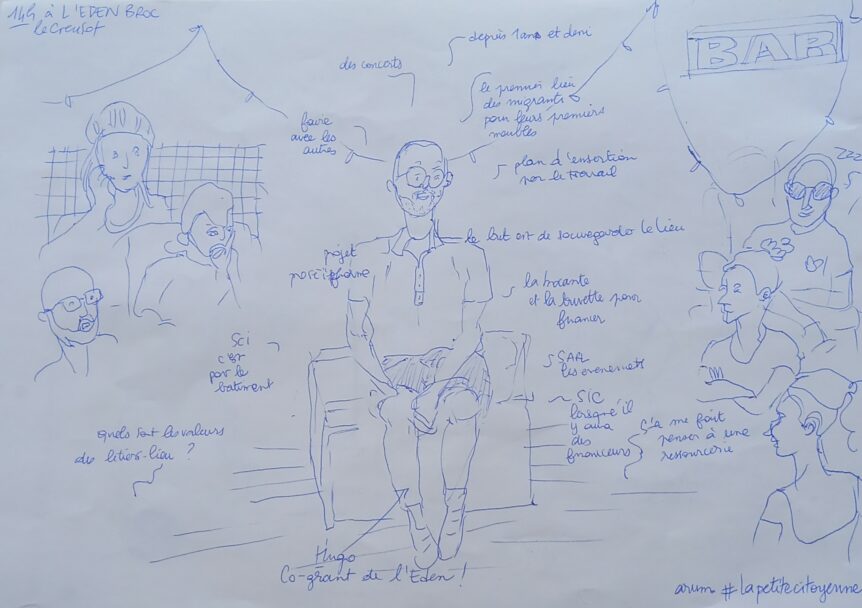 14h à L'EDEN BROC
le Creusot
BAR
depuis 1 ans et demi
des concerts
le premier lieu
des migrants
pour leurs premiers
meubles
faire
avec les
autres
plan d'insertion
par le travail
Zzz
le but est de sauvegarder le lieu
projet
la brocante
et la buvette pour
financer
SCI
c'est
pour le
batiment
les evenements
SIC
lorsqu'il
y aura
des
financeurs
ç'a me fait
penser à une
ressourcerie
quels sont les valeurs
des
?
Hugo
Co-gérant de l'Eden !
arum #lapetitecitoyenne